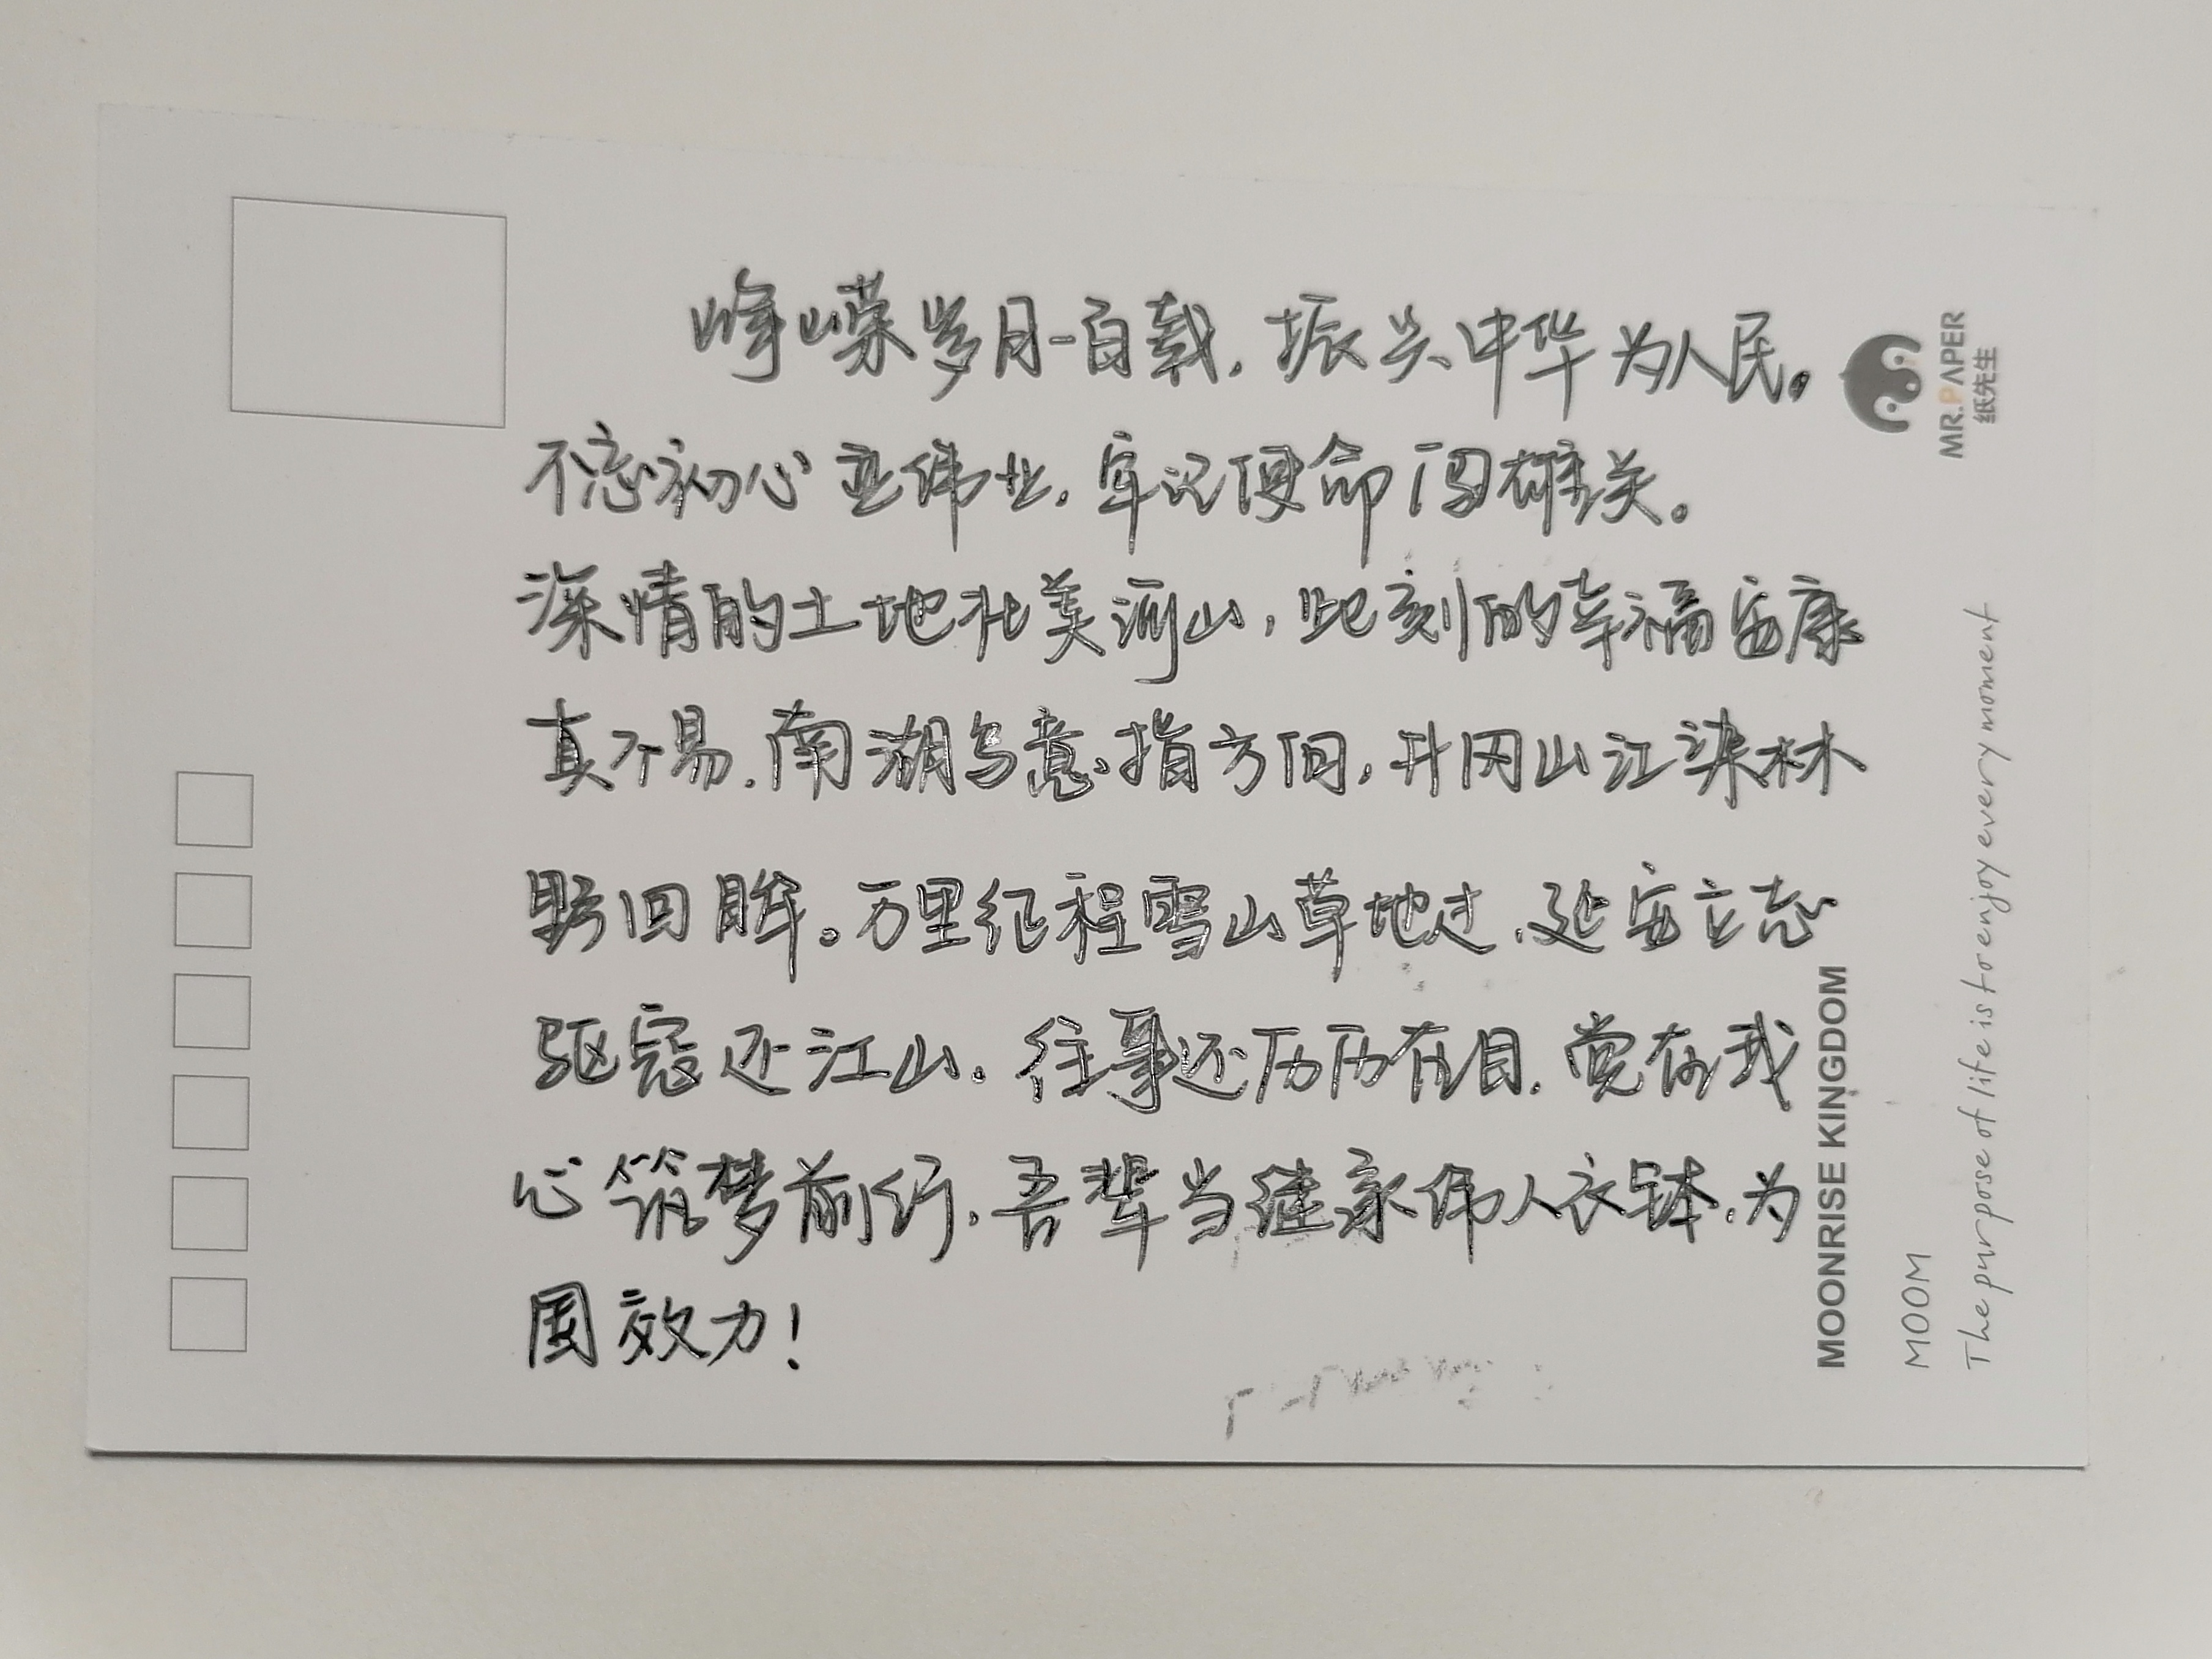 峥嵘岁月一百载，振兴中华为人民。
不忘初心立伟业，牢记使命闯雄关。
深情的土地壮美河山，此刻的幸福安康
真不易，南湖乌意指方向，井冈山江染林
野回眸。万里征程雪山草地过，延安立志
驱寇还江山。往事还历历在目，党在我
心筑梦前行，吾辈当继承伟人衣钵，为
国效力！
MR.PAPER
纸先生
MOONRISE KINGDOM
MOOM
The purpose of life is to enjoy every moment